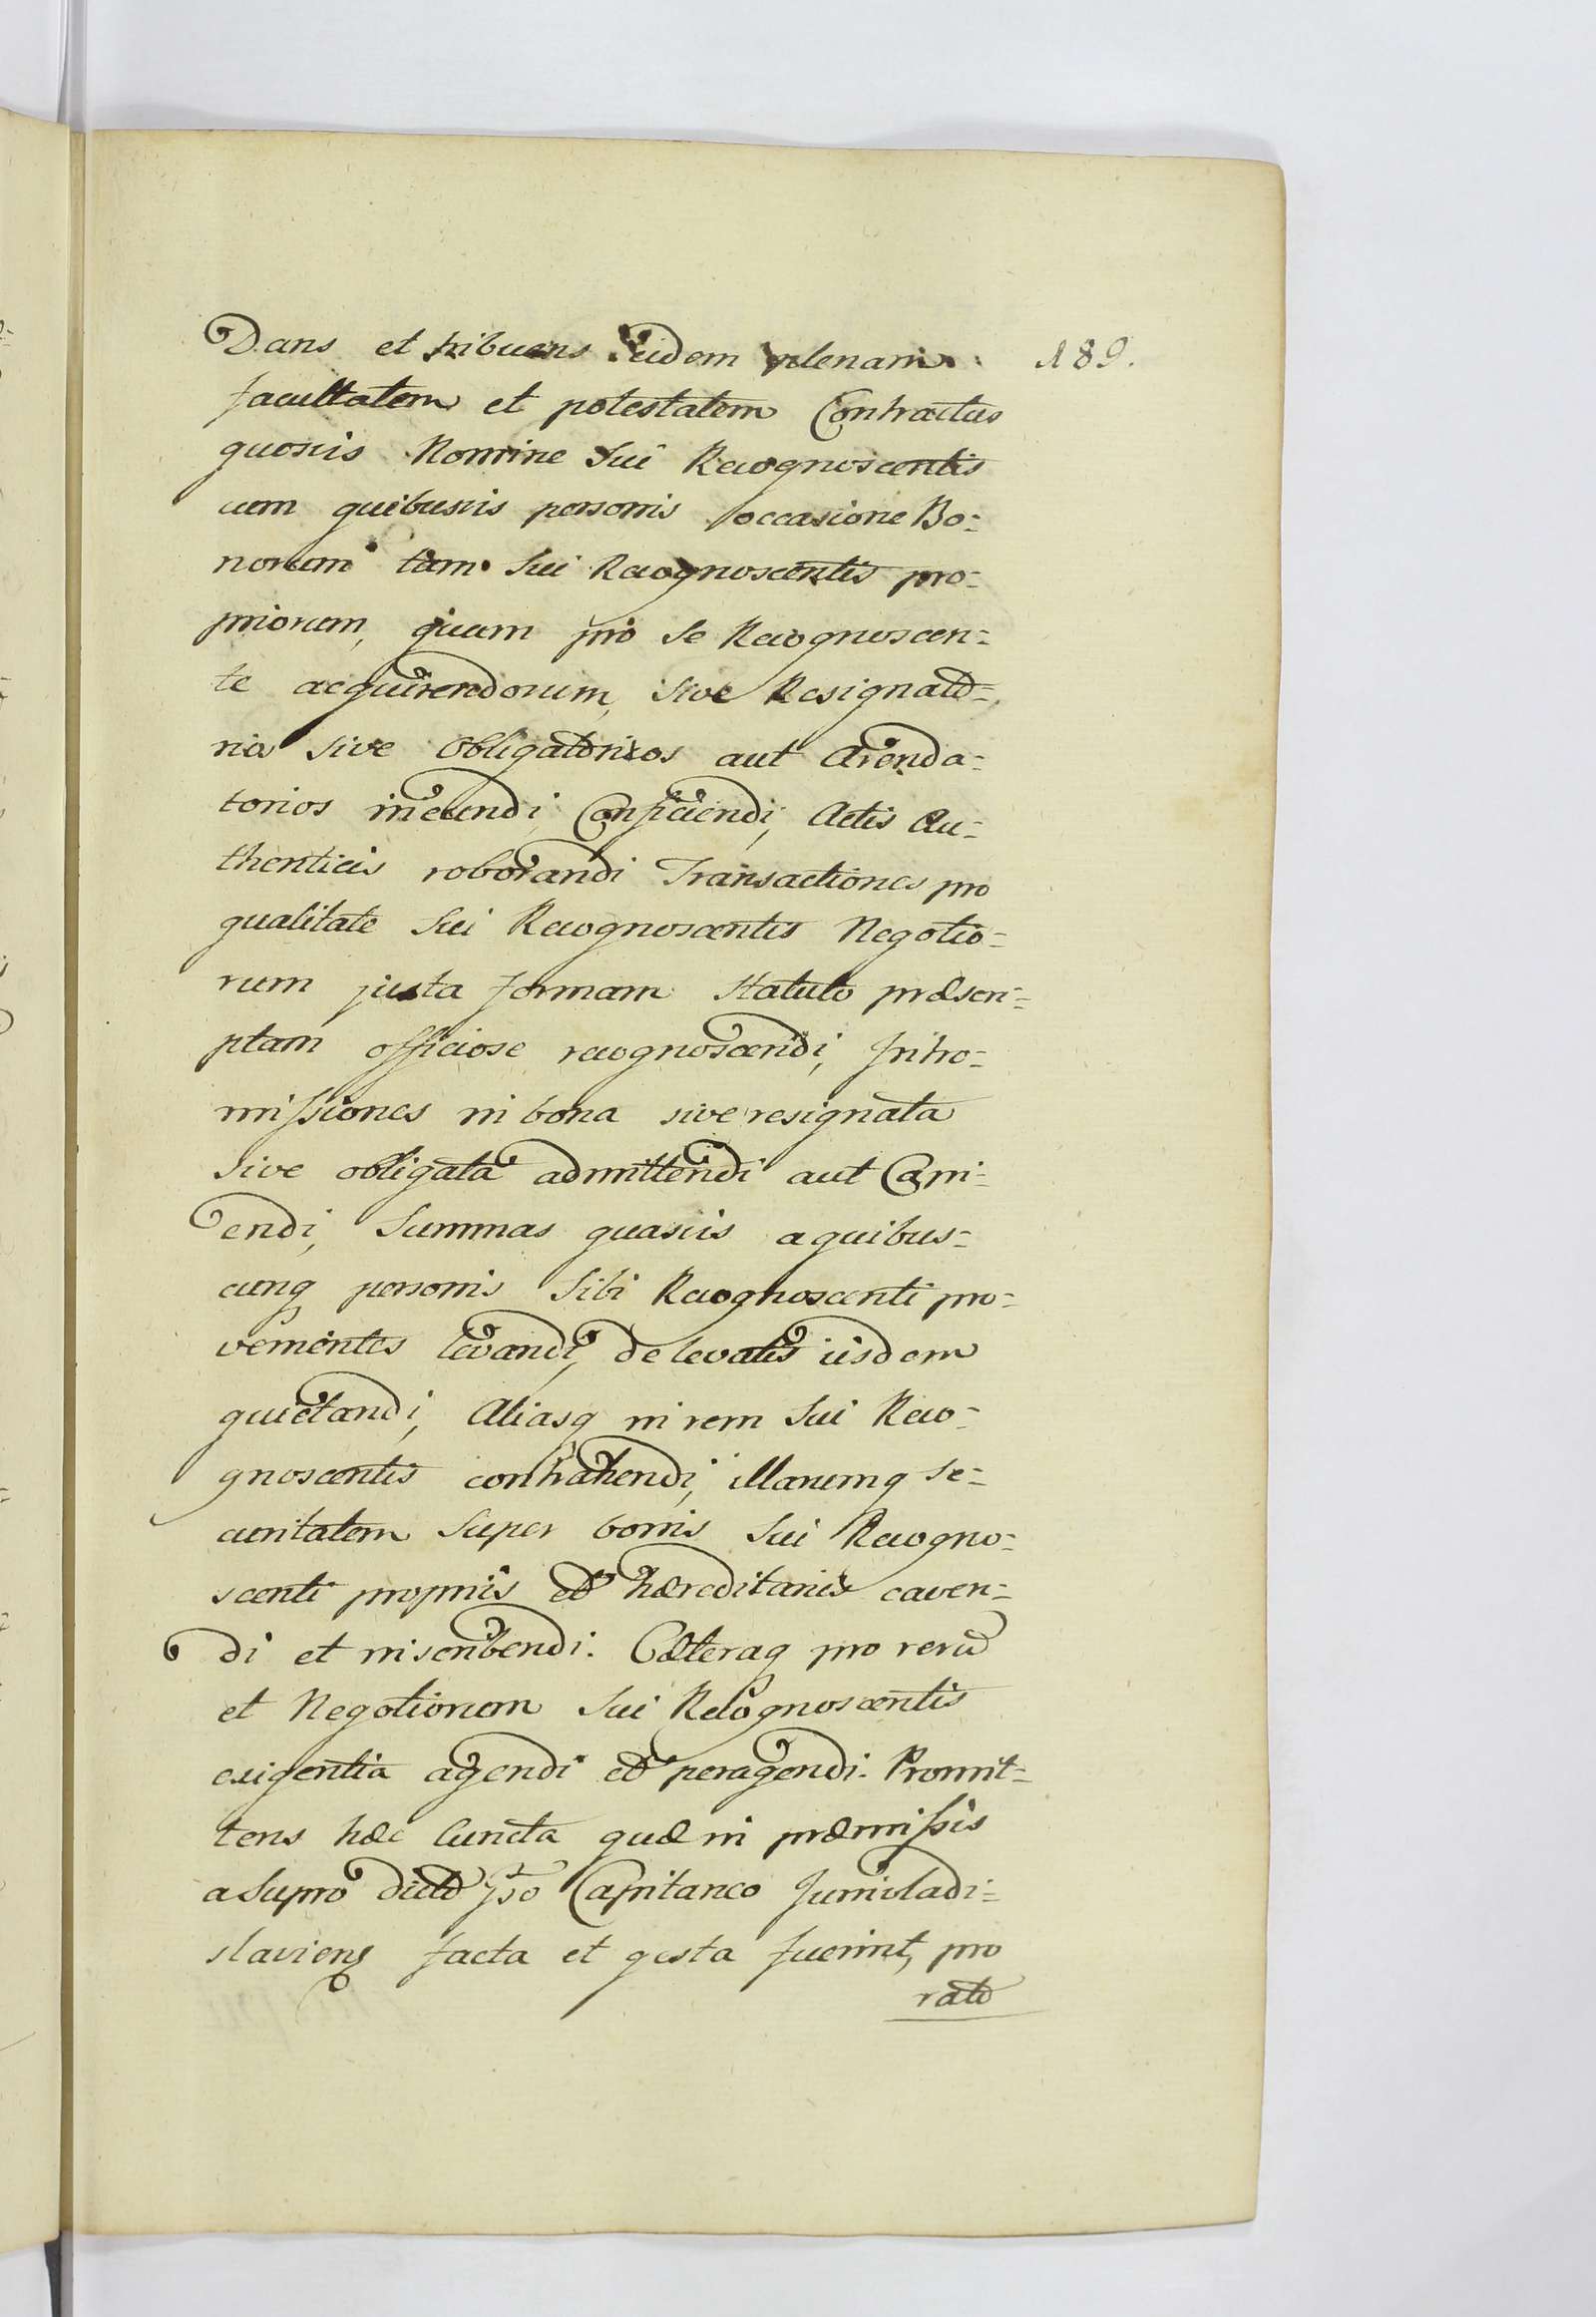 Dans et tribuens Eidem plenam 189.
facultatem et potestatem Contractus
quosvis Nomine Sui Recognoscentis
cum quibusvis personis occasione Bo=
norum tam Sui Recognoscentis pro=
priorum, quam pro Se Recognoscen=
te acquirendorum, Sive Resignato=
rios sive Obligatorios aut Arenda=
torios ineundi, Conficiendi, Actis Au=
thenticis roborandi Transactiones pro
qualitate Sui Recognoscentis Negotio=
rum juxta formam Statuto præscri=
ptam officiose recognoscendi, Intro=
missiones in bona sive resignata
sive obligata admittendi aut Capi=
endi, Summas quasvis a quibus=
cunq personis Sibi Recognoscenti pro=
venientes levandi, de levatis iisdem
quietandi, Aliasq in rem Sui Reco=
gnoscentis contrahendi, illarumq se=
curitatem Super bonis Sui Recogno=
scenti propriis et hæreditariis caven=
di et inscribendi. Cæteraq pro rerū
et Negotiorum Sui Recognoscentis
exigentia agendi et peragendi. Promit=
tens hæc Cuncta quæ in præmissis
a Supro dicto Capitaneo Juniwladi=
slaviens facta et gesta fuerint, pro
rato